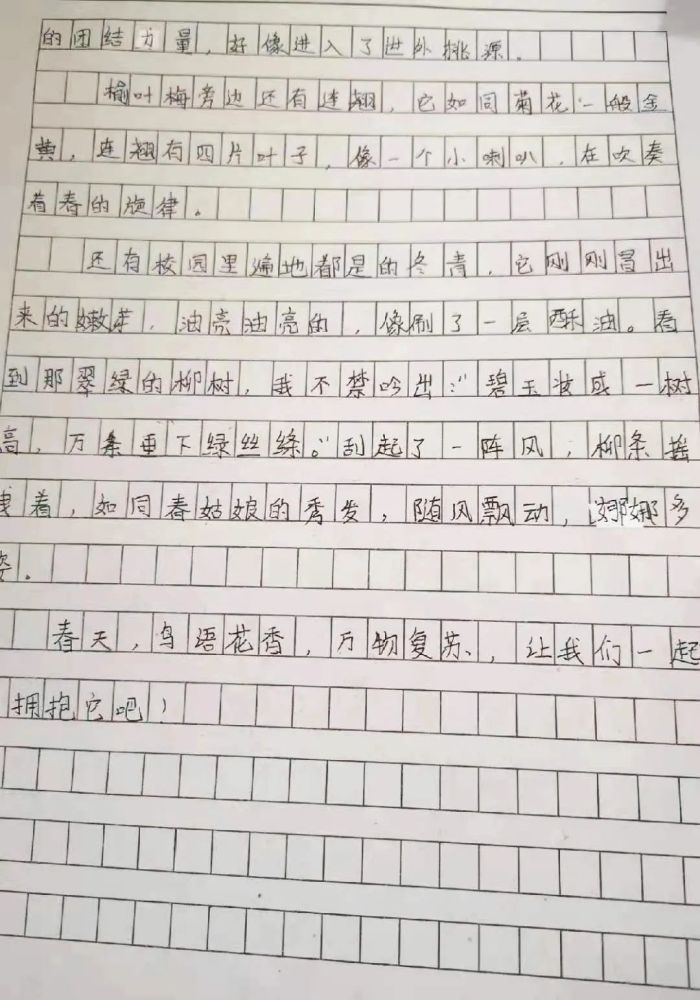 的团结力量，好像进入了进外桃源。
榆叶梅旁边还有连翘，它如同菊花一般金
黄，连翘有四片叶子，像一个小喇叭，在吹奏
着春的旋律。
还有校园里遍地都是的冬青，它刚刚冒出
来的嫩芽，油亮油亮的，像刷了一层酥油。看
到那翠绿的柳树，我不禁吟出：“碧玉妆成一树
高，万条垂下绿丝绦。”刮起了一阵风，柳条摇
曳着，如同春姑娘的秀发，随风飘动，婀娜多
姿。
春天，鸟语花香，万物复苏，让我们一起
拥抱它吧！